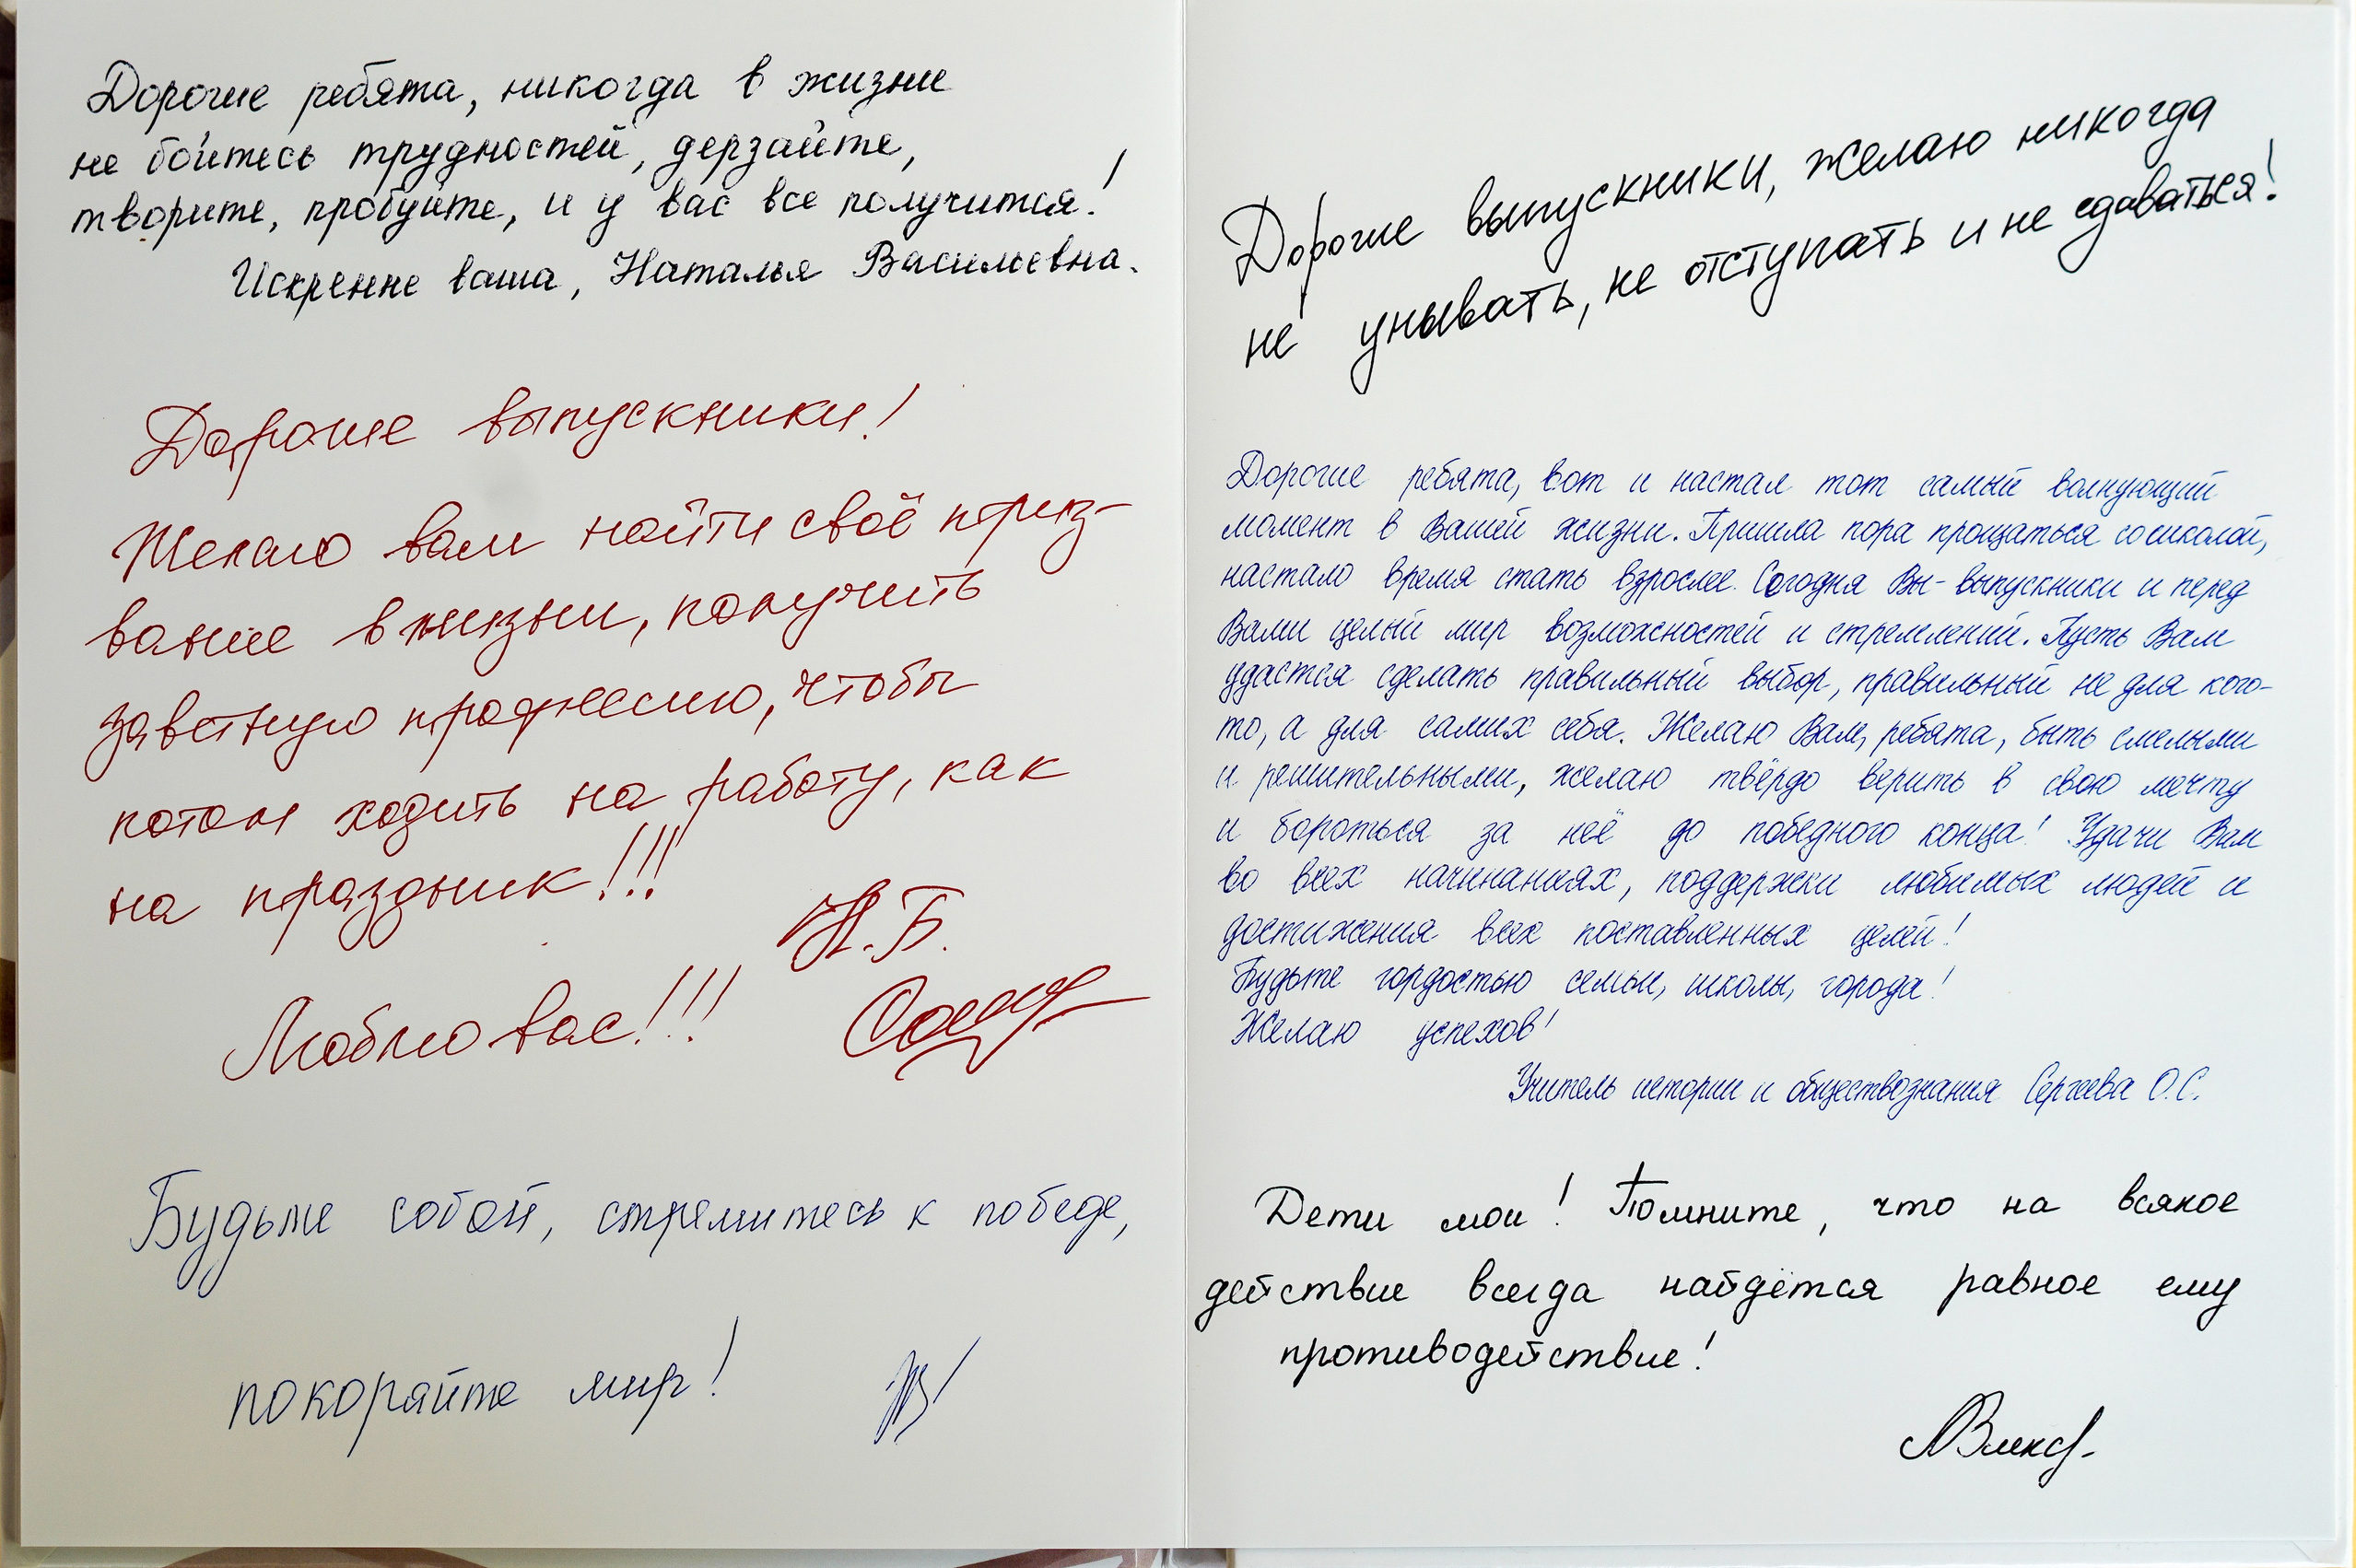 Дорогие ребята, никогда в жизни
не бойтесь трудностей, дерзайте,
творите, пробуйте, и у вас все получится!
Искренне ваша, Наталья Васильевна.
Дорогие выпускники!
Желаю вам найти своё приз-
вание в жизни, получить
заветную профессию, чтобы
потом ходить на работу, как
на праздник!!!
Н.Б.
Люблю вас!!!
Будьте собой, стремитесь к победе,
покоряйте мир!
Дорогие выпускники, желаю никогда
не унывать, не отступать и не сдаваться!
Дорогие ребята, вот и настал тот самый волнующий
момент в Вашей жизни. Пришла пора прощаться со школой,
настало время стать взрослее. Сегодня Вы - выпускники и перед
Вами целый мир возможностей и стремлений. Пусть Вам
удастся сделать правильный выбор, правильный не для кого-
то, а для самих себя. Желаю Вам, ребята, быть смелыми
и решительными, желаю твёрдо верить в свою мечту
и бороться за неё до победного конца! Удачи Вам
во всех начинаниях, поддержки любимых людей и
достижения всех поставленных целей!
Будьте гордостью семьи, школы, города!
Желаю успехов!
Учитель истории и обществознания Сергеева О.С.
Дети мои! Помните, что на всякое
действие всегда найдётся равное ему
противодействие!